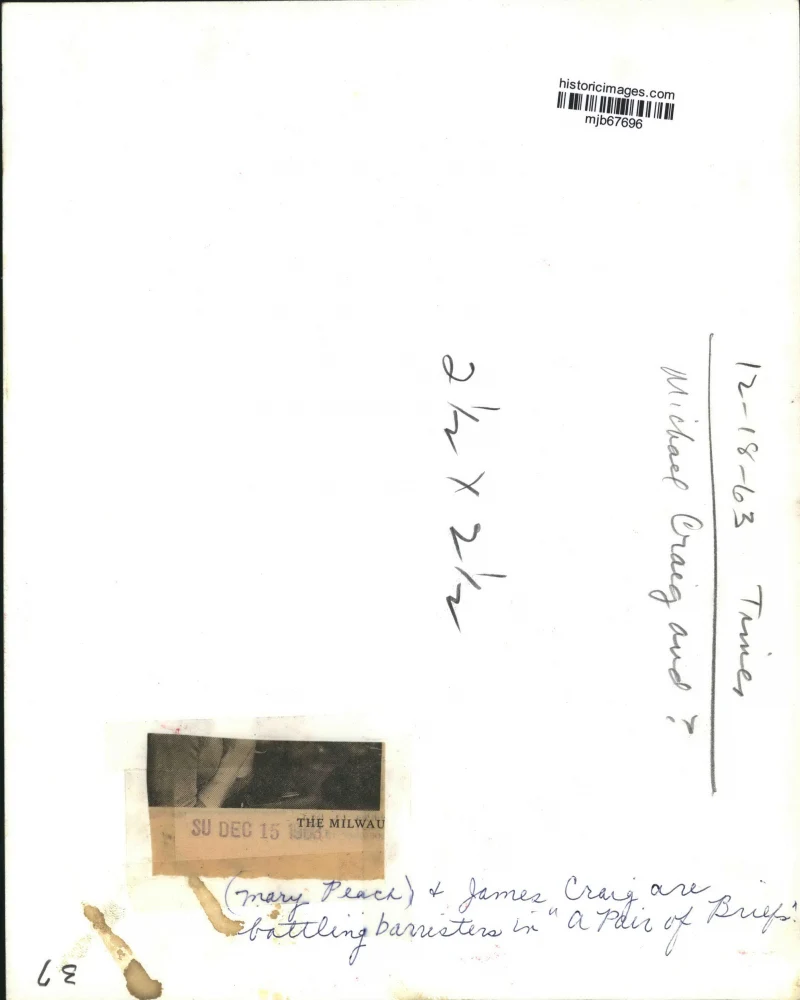 historicimages.com
mjb67696
12-18-63 Times
Michael Craig and ?
2 1/2 X 2 1/2
SU DEC 15
THE MILWAU
(Mary Peach) & James Craig are
battling barristers in "A Pair of Briefs".
37